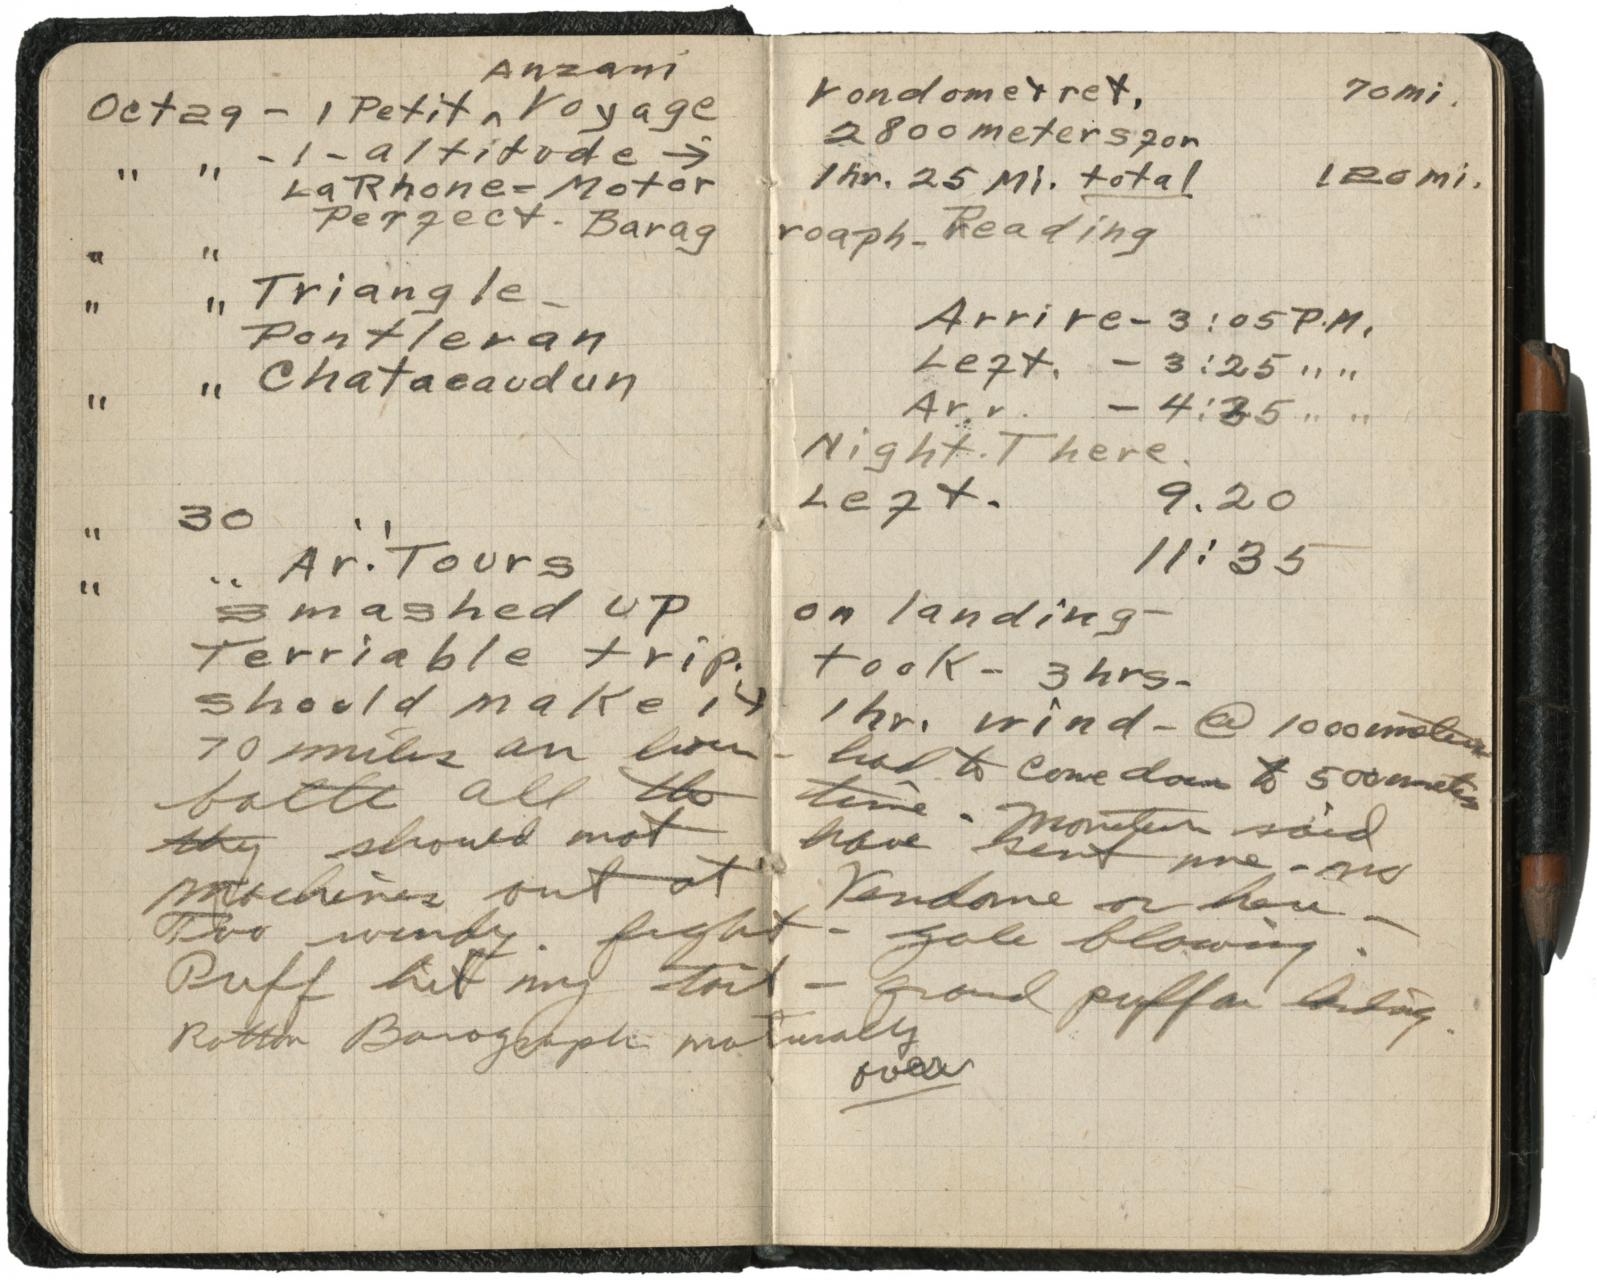 Anzani
Oct 29 - 1 Petit ^ Voyage Vondometret, 70 mi.
" " - 1 - altitude → 2800 meters for
LaRhone - Motor 1 hr. 25 Mi. total 120 mi.
Perfect - Barag roaph - Reading
" "
" " Triangle -
Arrive - 3:05 P.M.
Pontleran Left. - 3:25 " "
" " Chataeaudun Arr. - 4:35 " "
Night. There.
" 30 " Left. 9.20
" " Ar. Tours 11:35
smashed up on landing -
Terriable trip. took - 3 hrs -
should make it 1 hr. wind - @ 1000 meters
70 miles an hour - had to come down to 500 meters
battle all the time. Moniteur said
they should not have sent me - no
machines out at Vendome or here -
Too windy. fight - gale blowing.
Puff hit my tail - ground puff on landing.
Rotten Barograph naturally
over